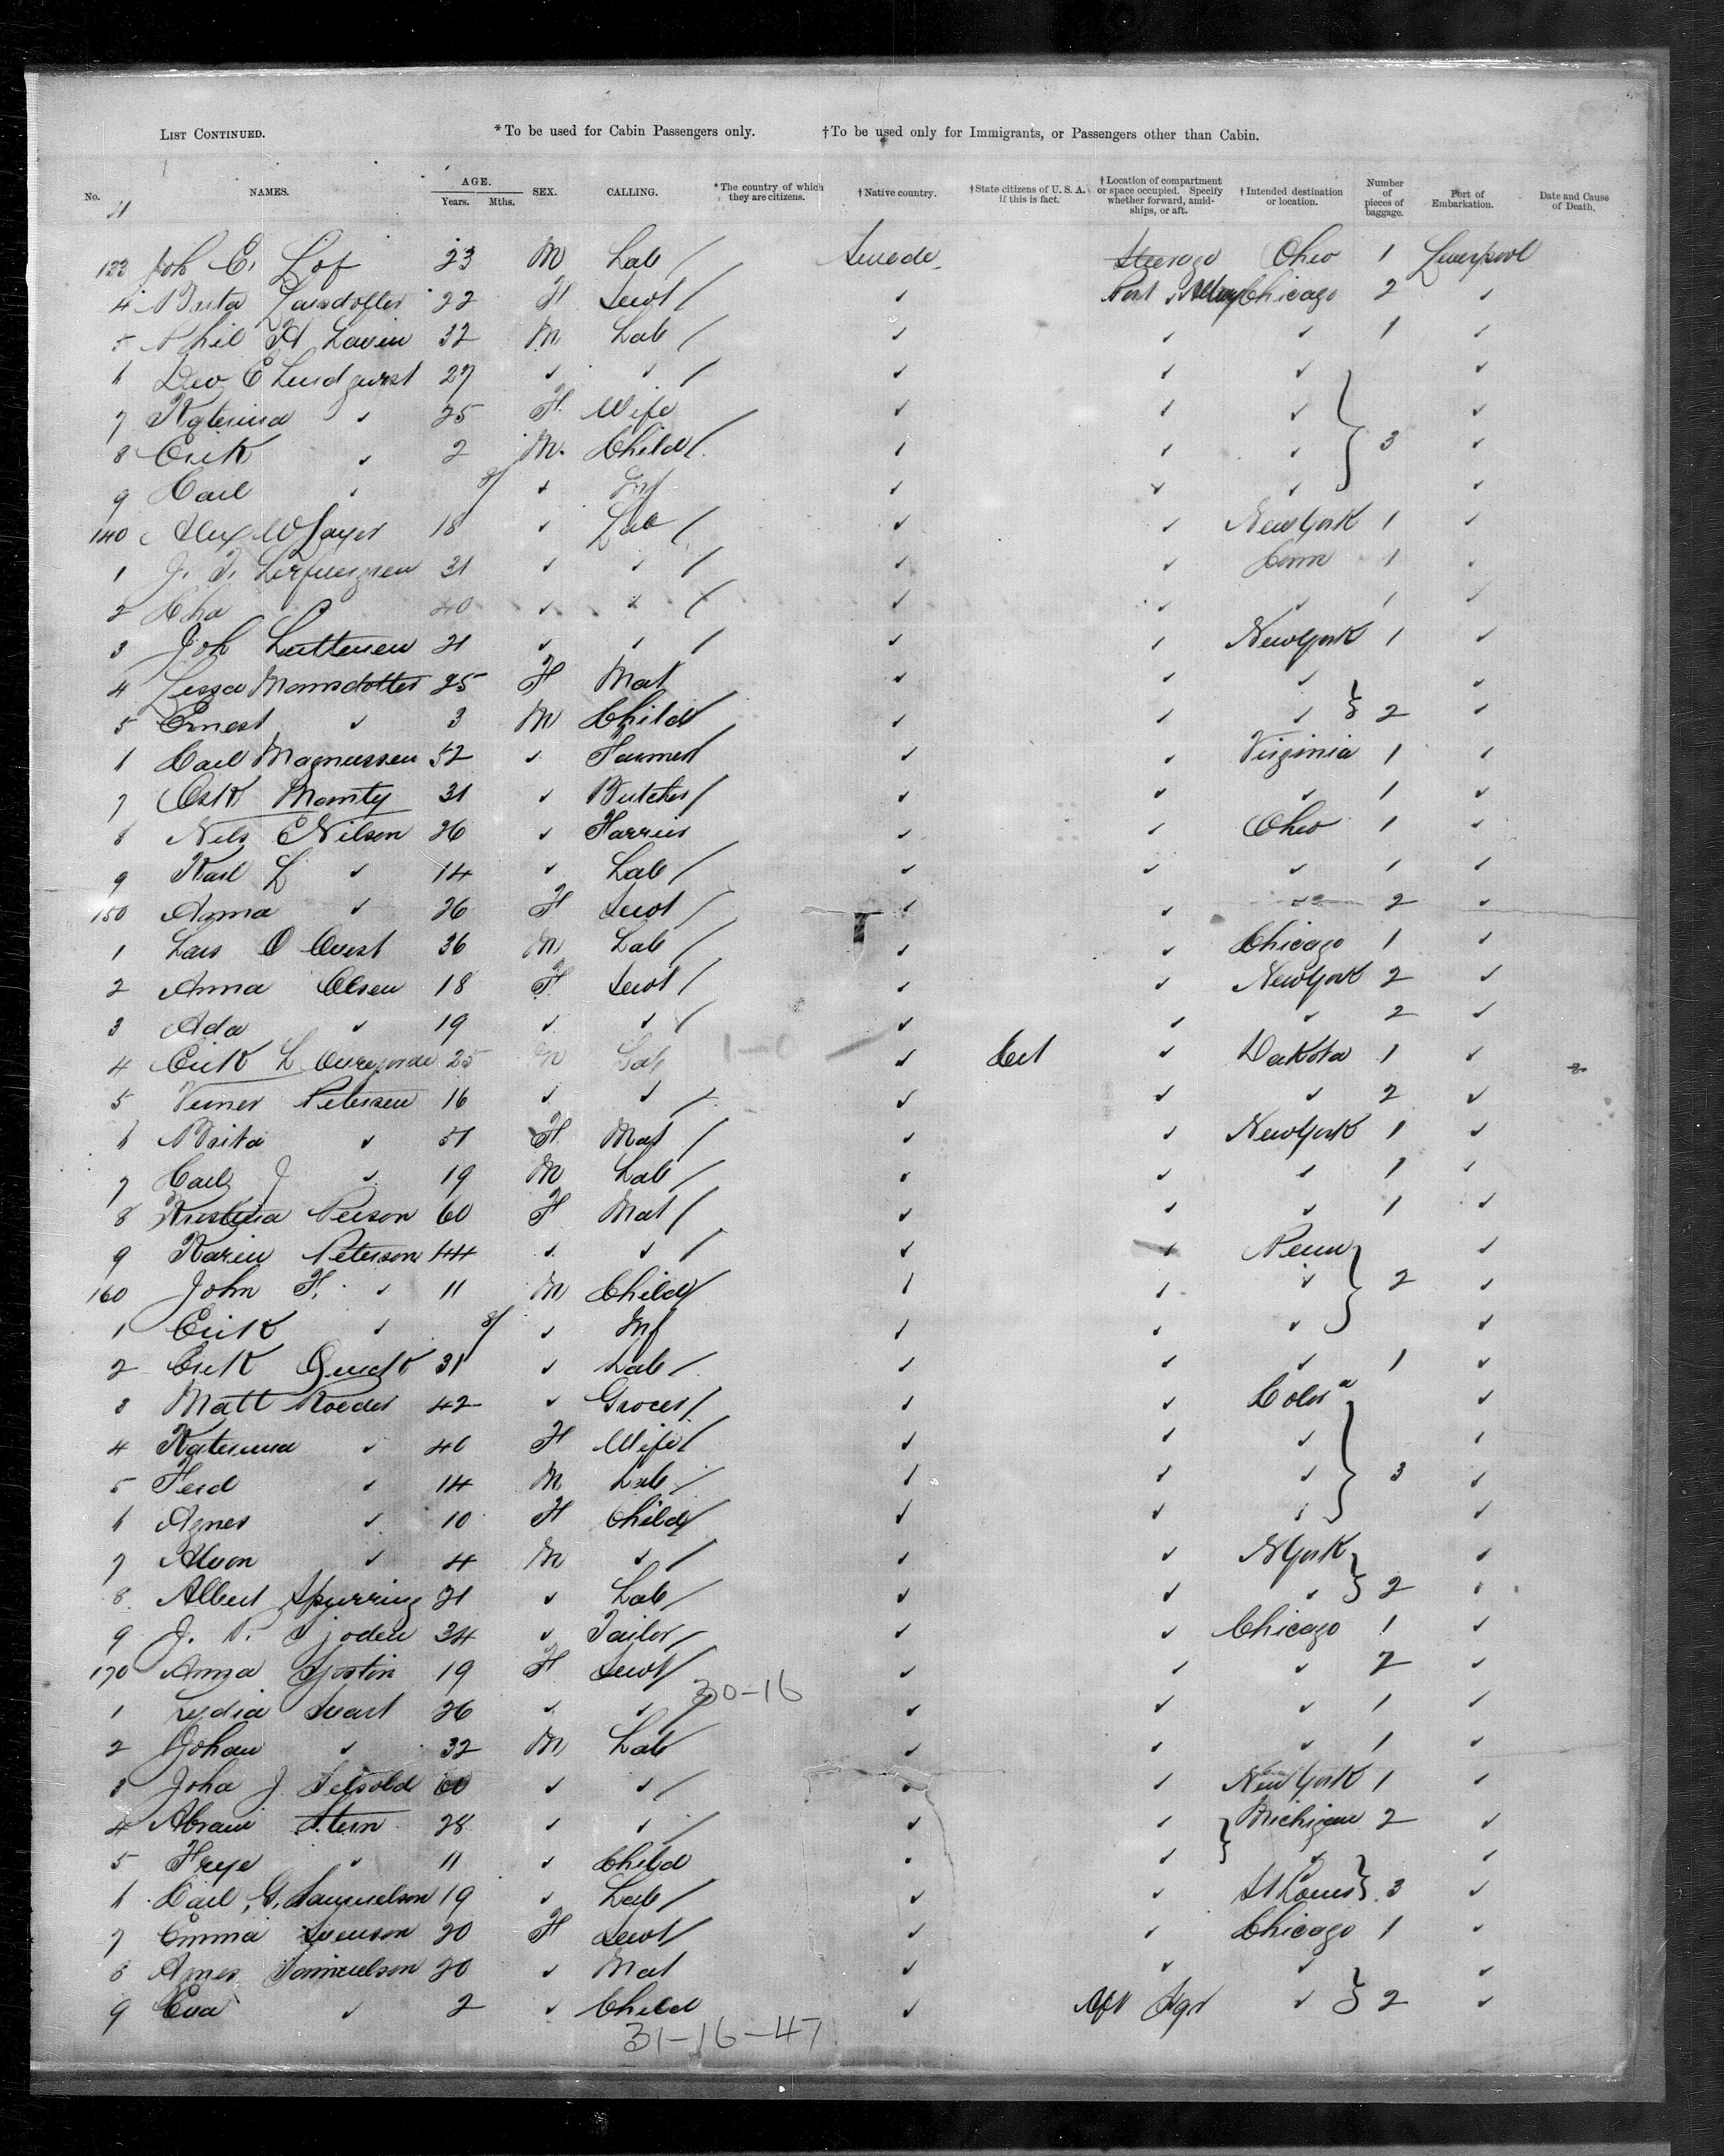 LIST CONTINUED. *To be used for Cabin Passengers only. †To be used only for Immigrants, or Passengers other than Cabin.
No. NAMES. AGE. Years. Mths. SEX. CALLING. *The country of which they are citizens. †Native country. †State citizens of U. S. A. if this is fact. †Location of compartment or space occupied. Specify whether forward, amidships, or aft. †Intended destination or location. Number of pieces of baggage. Port of Embarkation. Date and Cause of Death.
Joh E. Lof 23 M Lab / Swede Steerage Ohio 1 Liverpool
4 Brita Larsdotter 22 F Servt / ✓ Chicago 2 ✓
5 Phil H Lavin 32 M Lab / ✓ ✓ ✓ 1 ✓
6 E Lindqwist 27 ✓ ✓ / ✓ ✓ ✓ ✓
7 Katerina ✓ 25 F Wife ✓ ✓ ✓ ✓
8 Erik ✓ 2 M. Child / ✓ ✓ ✓ 3 ✓
9 Carl ✓ 8/ ✓ Inf ✓ ✓ ✓ ✓
140 Alex W 18 ✓ Lab / ✓ ✓ New York 1 ✓
1 J. 31 ✓ ✓ / ✓ ✓ Conn 1 ✓
2 Cha 40 ✓ ✓ / ✓ ✓ ✓ 1 ✓
3 Joh 21 ✓ ✓ / ✓ ✓ New York 1 ✓
4 Monsdotter 25 F Mat ✓ ✓ ✓ ✓
5 Ernest ✓ 3 M Child / ✓ ✓ ✓ 2 ✓
6 Carl Magnussen 52 ✓ Farmer / ✓ ✓ Virginia 1 ✓
7 Osk 31 ✓ Butcher / ✓ ✓ ✓ 1 ✓
8 Nils E Nilson 26 ✓ ✓ ✓ Ohio 1 ✓
9 Karl L ✓ 14 ✓ Lab / ✓ ✓ ✓ 1 ✓
150 Anna ✓ 26 F Servt / ✓ ✓ 2 ✓
1 Lars O 36 M Lab / ✓ ✓ Chicago 1 ✓
2 Anna Olsen 18 F Servt / ✓ ✓ New York 2 ✓
3 Ada ✓ 19 ✓ ✓ / ✓ ✓ ✓ 2 ✓
4 Erik L 25 M Lab ✓ Cit ✓ Dakota 1 ✓
5 Verner Petersen 16 ✓ ✓ / ✓ ✓ ✓ 2 ✓
6 Brita ✓ 51 F Mat / ✓ ✓ New York 1 ✓
7 Carl J ✓ 19 M Lab / ✓ ✓ ✓ 1 ✓
8 Kristina Person 60 F Mat / ✓ ✓ ✓ 1 ✓
9 Karin Peterson 44 ✓ ✓ / ✓ ✓ Penn ✓
160 John F. ✓ 11 M Child / ✓ ✓ ✓ 2 ✓
1 Erik ✓ 8/ ✓ Inf ✓ ✓ ✓ ✓
2 Erik 31 ✓ Lab / ✓ ✓ ✓ 1 ✓
3 Matt Roeder 42 ✓ Grocer / ✓ ✓ Colo ✓
4 Katerina ✓ 40 F Wife / ✓ ✓ ✓ ✓
5 Ferd ✓ 14 M Lab / ✓ ✓ ✓ 3 ✓
6 Agnes ✓ 10 F Child / ✓ ✓ ✓ ✓
7 ✓ 4 M ✓ / ✓ ✓ N York ✓
8 Albert Spurring 21 ✓ Lab / ✓ ✓ ✓ 2 ✓
9 J. P. Sjoden 34 ✓ Tailor / ✓ ✓ Chicago 1 ✓
170 Anna 19 F Servt / ✓ ✓ ✓ 2 ✓
30-16
1 Lydia Svart 26 ✓ ✓ / ✓ ✓ ✓ 1 ✓
2 Johan ✓ 32 M Lab ✓ ✓ ✓ 1 ✓
3 John J. 60 ✓ ✓ / ✓ ✓ New York 1 ✓
4 Abram Stern 28 ✓ ✓ / ✓ ✓ Michigan 2 ✓
5 ✓ 11 ✓ Child ✓ ✓ ✓ ✓
6 Carl G. Samuelson 19 ✓ Lab / ✓ ✓ St Louis 3 ✓
7 Emma Svenson 20 F Servt / ✓ ✓ Chicago 1 ✓
8 Agnes Samuelson 20 ✓ Mat ✓ ✓ ✓ ✓
9 Eva ✓ 2 ✓ Child ✓ ✓ 2 ✓
31-16-47